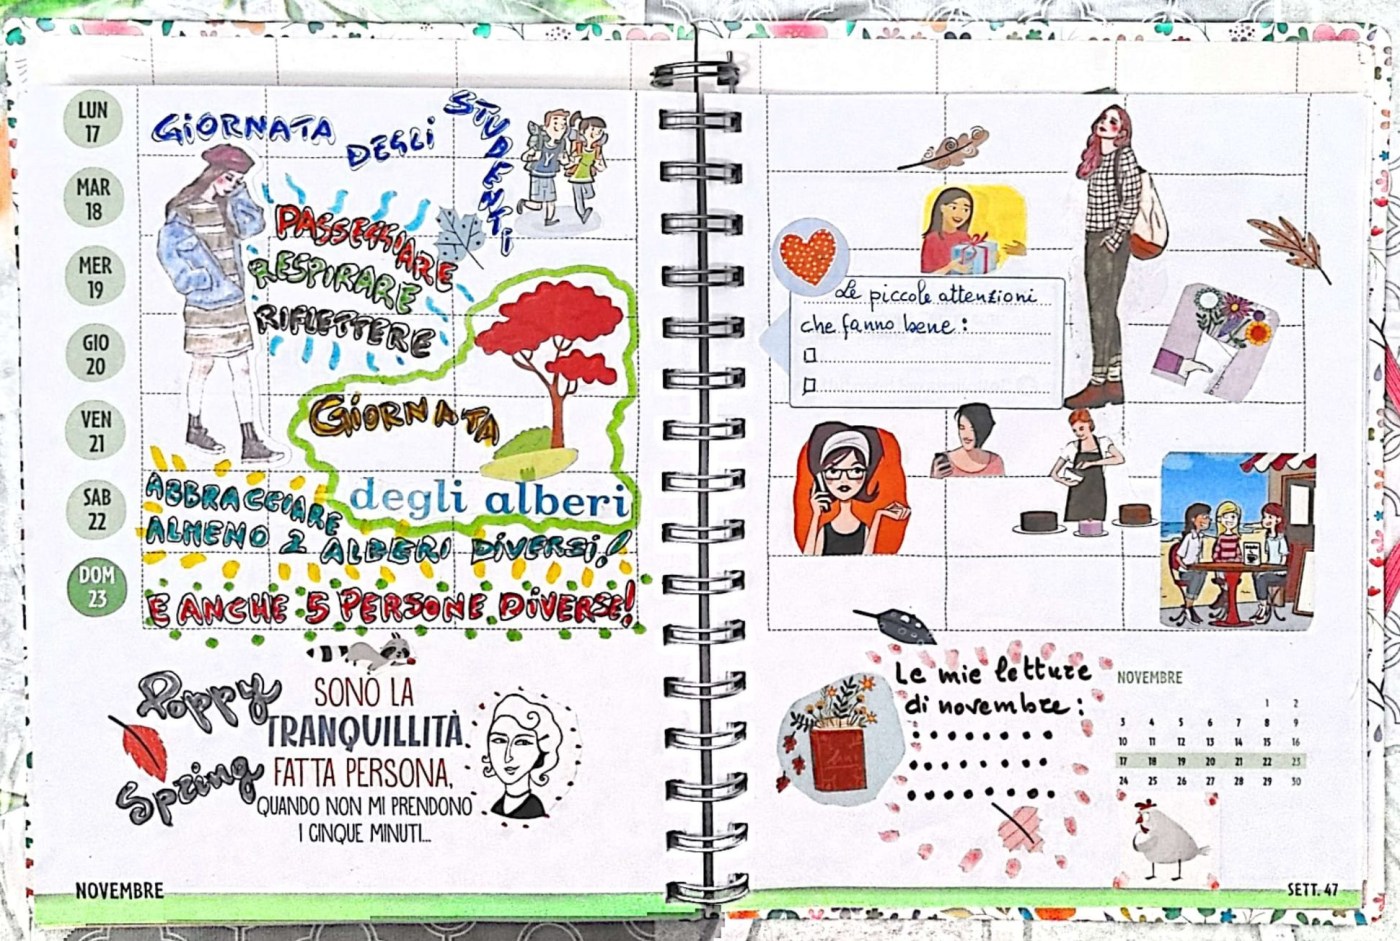 LUN
17
MAR
18
MER
19
GIO
20
VEN
21
SAB
22
DOM
23
GIORNATA
DEGLI
STUDENTI
PASSEGGIARE
RESPIRARE
RIFLETTERE
GIORNATA
degli alberi
ABBRACCIARE
ALMENO 2 ALBERI DIVERSI!
E ANCHE 5 PERSONE DIVERSE!
Poppy
Spring
SONO LA
TRANQUILLITÀ
FATTA PERSONA,
QUANDO NON MI PRENDONO
I CINQUE MINUTI...
NOVEMBRE
Le piccole attenzioni
che fanno bene:
Le mie letture
di novembre:
NOVEMBRE
1 2
3 4 5 6 7 8 9
10 11 12 13 14 15 16
17 18 19 20 21 22 23
24 25 26 27 28 29 30
SETT. 47